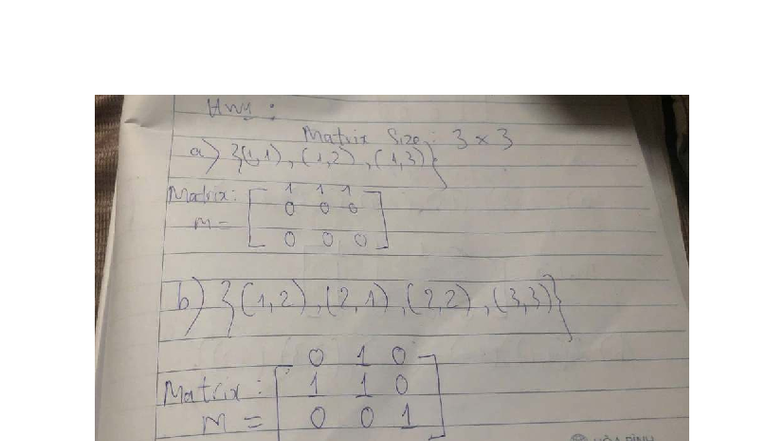 HW1:
Matrix Size: 3 × 3
a) {(1,1), (1,2), (1,3)}
Matrix: 1 1 1
M = 0 0 0
0 0 0
b) {(1,2), (2,1), (2,2), (3,3)}
0 1 0
Matrix: 1 1 0
M = 0 0 1
HÒA BÌNH